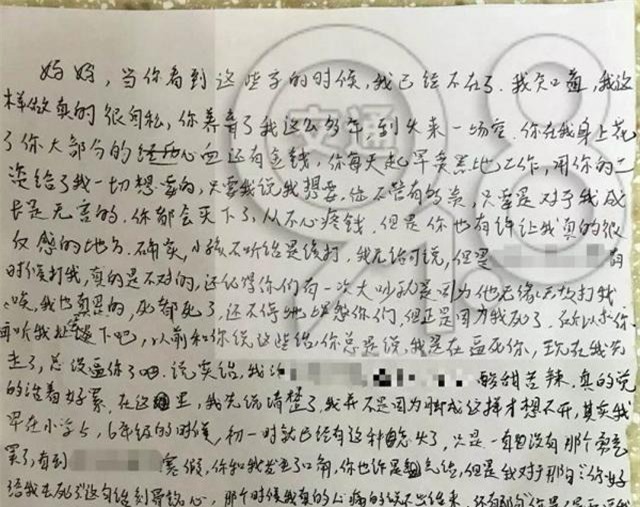 妈妈，当你看到这些字的时候，我已经不在了。我知道，我这
样做真的很自私，你养育了我这么多年，到头来一场空。你在我身上花
了你大部分的心血还有金钱，你每天起早贪黑地工作，用你的工
资给了我一切想要的，只要我说我想要，你不管有多贵，只要是对于我成
长是无害的，你都会买下了，从不心疼钱。但是你也有许让我真的很
仅感的地方。确实，小孩不听话是该打，我无话可说，但是 有
时候打我，真的是不对的，还记得你们有一次大吵就是因为他无缘无故打我
唉，我也真是的，死都死了，还不停地埋怨你们，但正是因为我死了，所以求你
再听我 下吧，以前和你说这些话，你总是说，我是在逼死你，现在我先
走了，总没逼你了吧。说实话，我 酸甜苦辣，真的觉
的活着好累。在这里，我先说清楚了，我并不是因为脚成这样才想不开，其实我
早在小学5，6年级的时候，初一时就已经有这种 头了，只是一直没有那个勇气
罢了，有到 寒假，你和我发生了口角，你也许是 气话，但是我对于那句“你好
给我去死”这句话刻骨铭心，那个时候我真的心痛的说不出话来，还有那句
交通
918